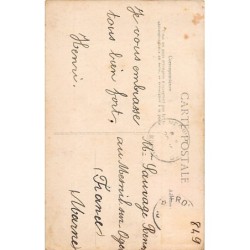 CARTE POSTALE
Correspondance
Je vous embrasse
tous bien fort.
Henri.
Sauvage
au Mesnil sur Oger
(France)
Marne
849